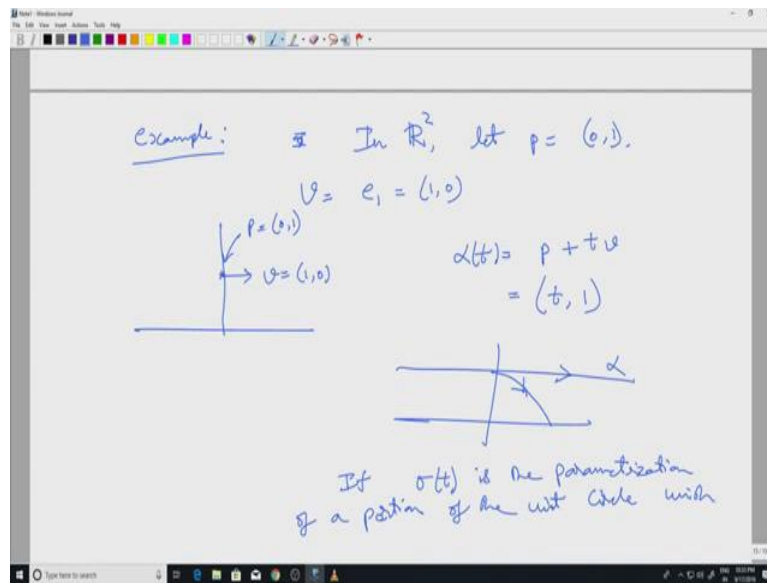 Note1 - Windows Journal
File Edit View Insert Actions Tools Help
example: In ℝ², let p = (0,1).
v = e₁ = (1,0)
p = (0,1)
v = (1,0)
α(t) = p + tv
= (t, 1)
α
If σ(t) is the parametization
of a portion of the unit circle with
Type here to search